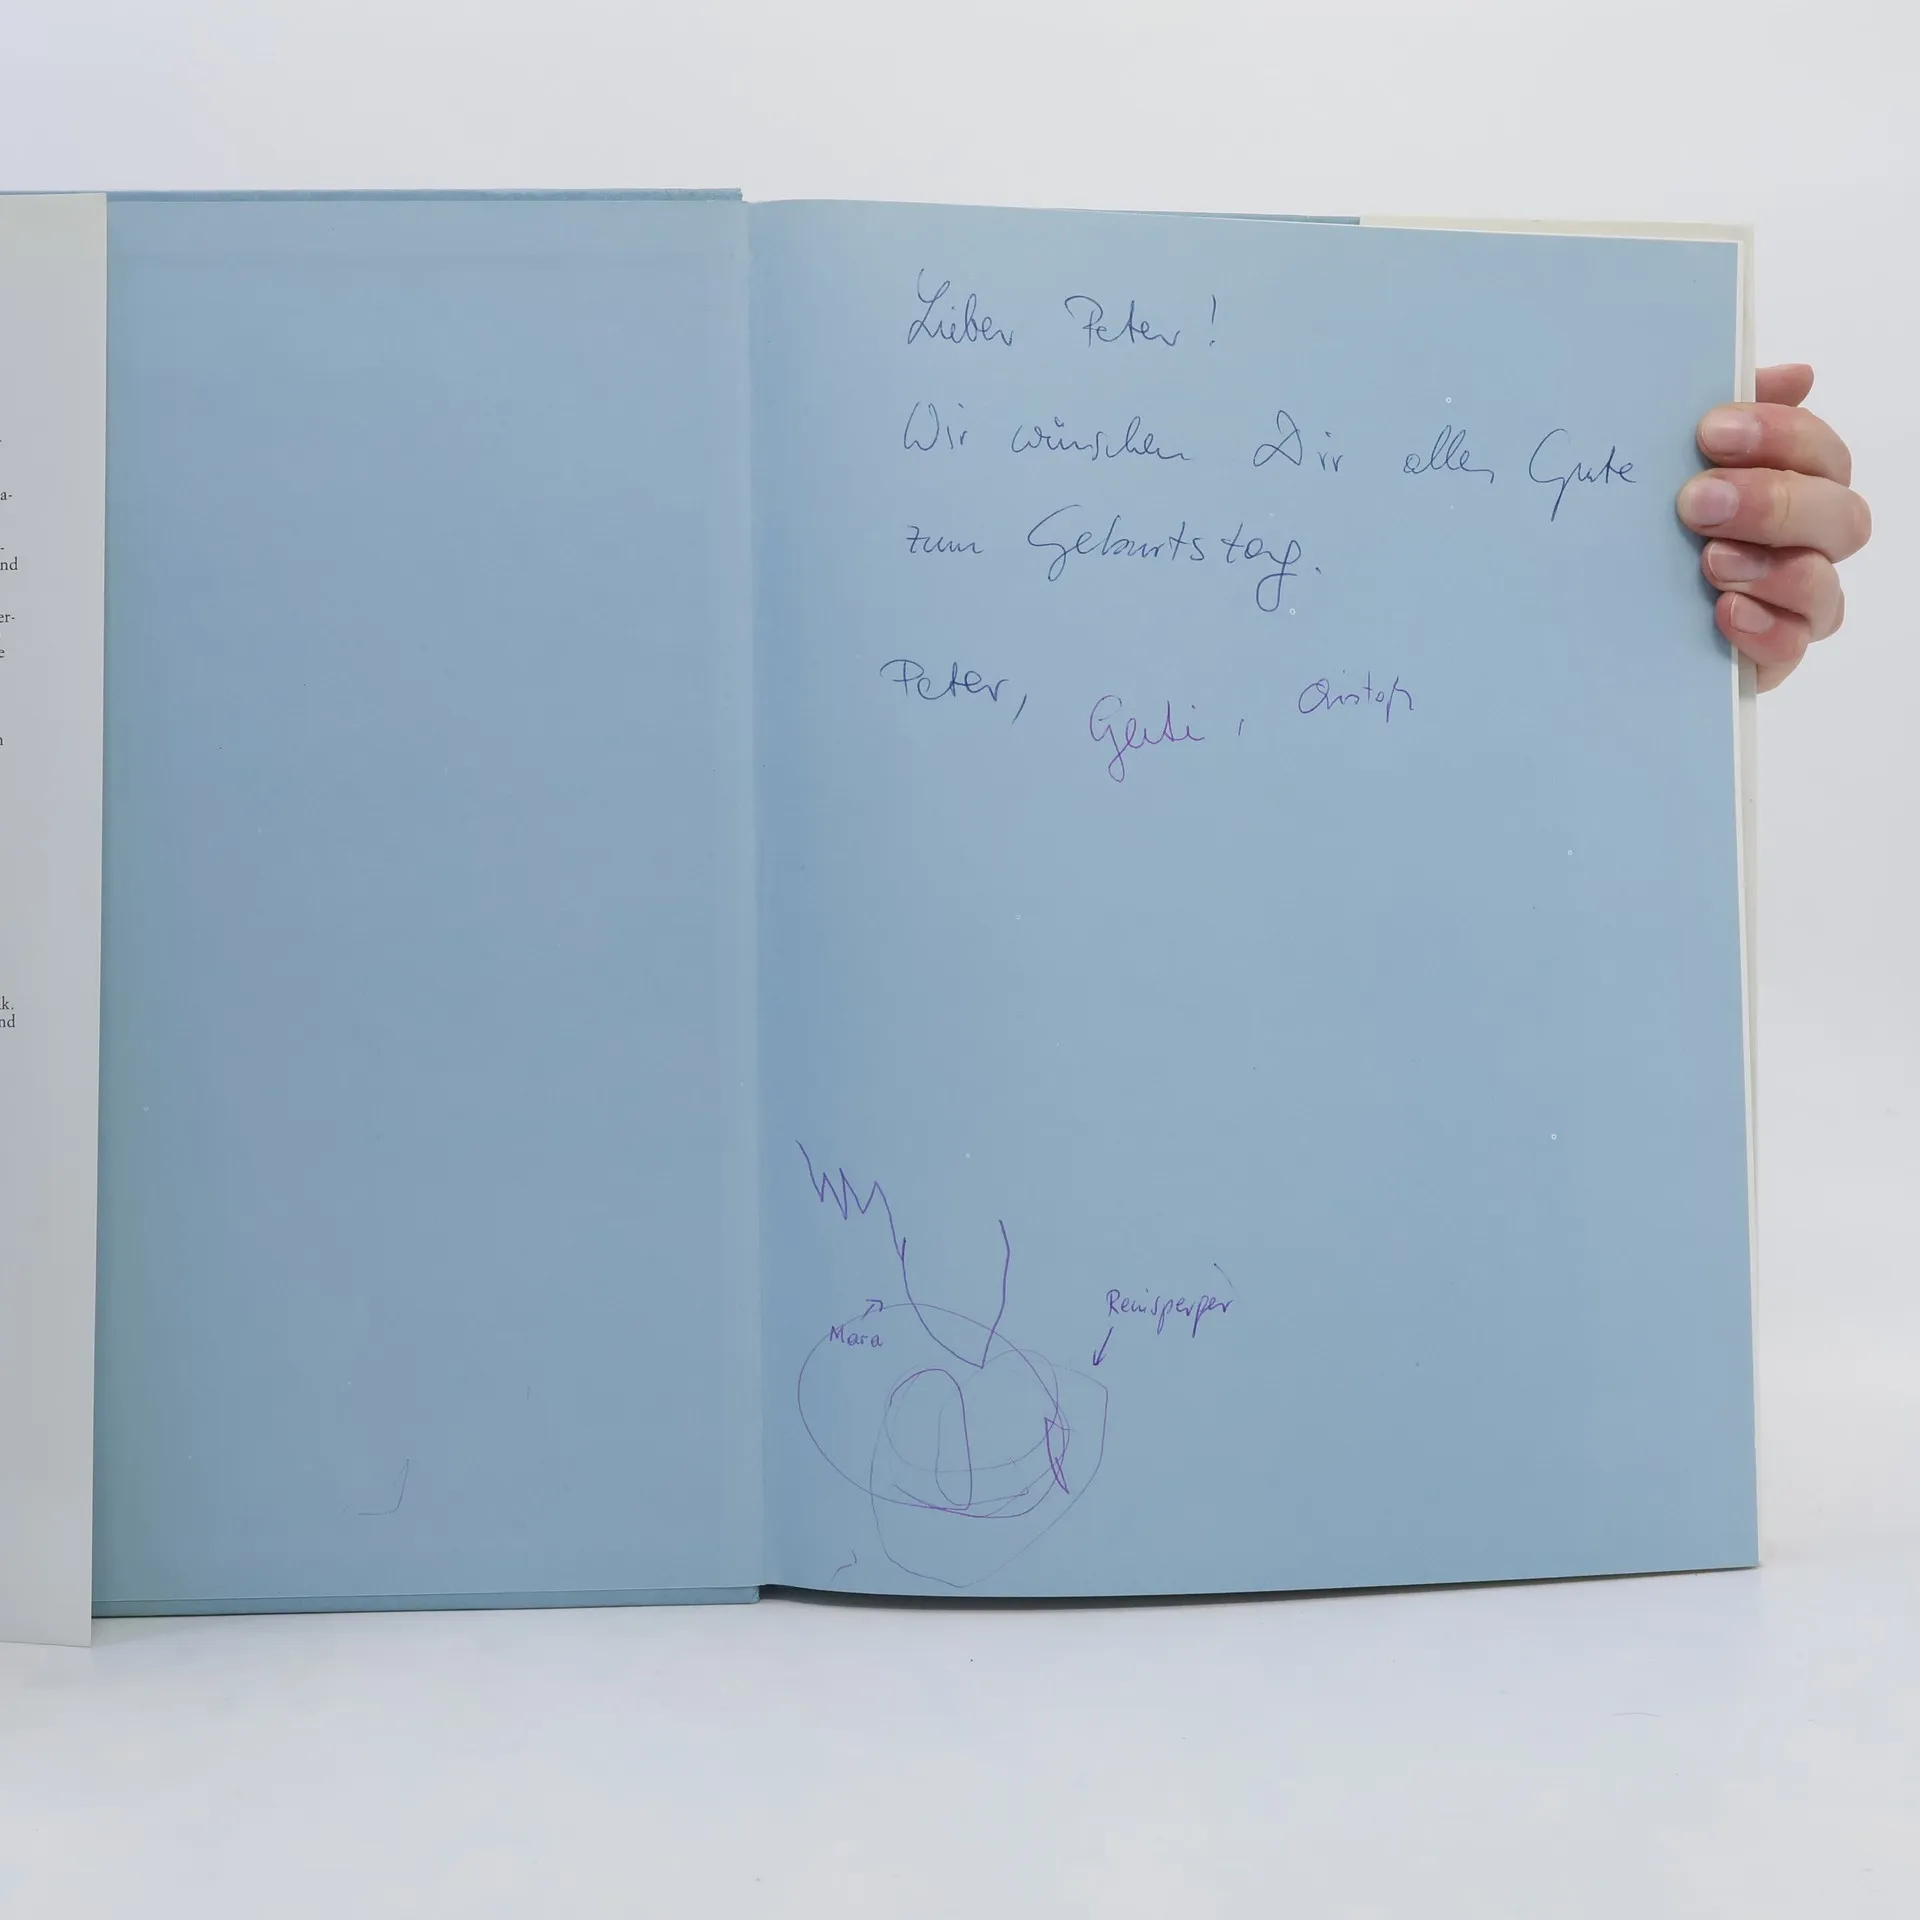 a-
-
nd
er-
e
n
k.
nd
Lieber Peter!
Wir wünschen Dir alles Gute
zum Geburtstag.
Peter, Gerti, Christoph
Mara